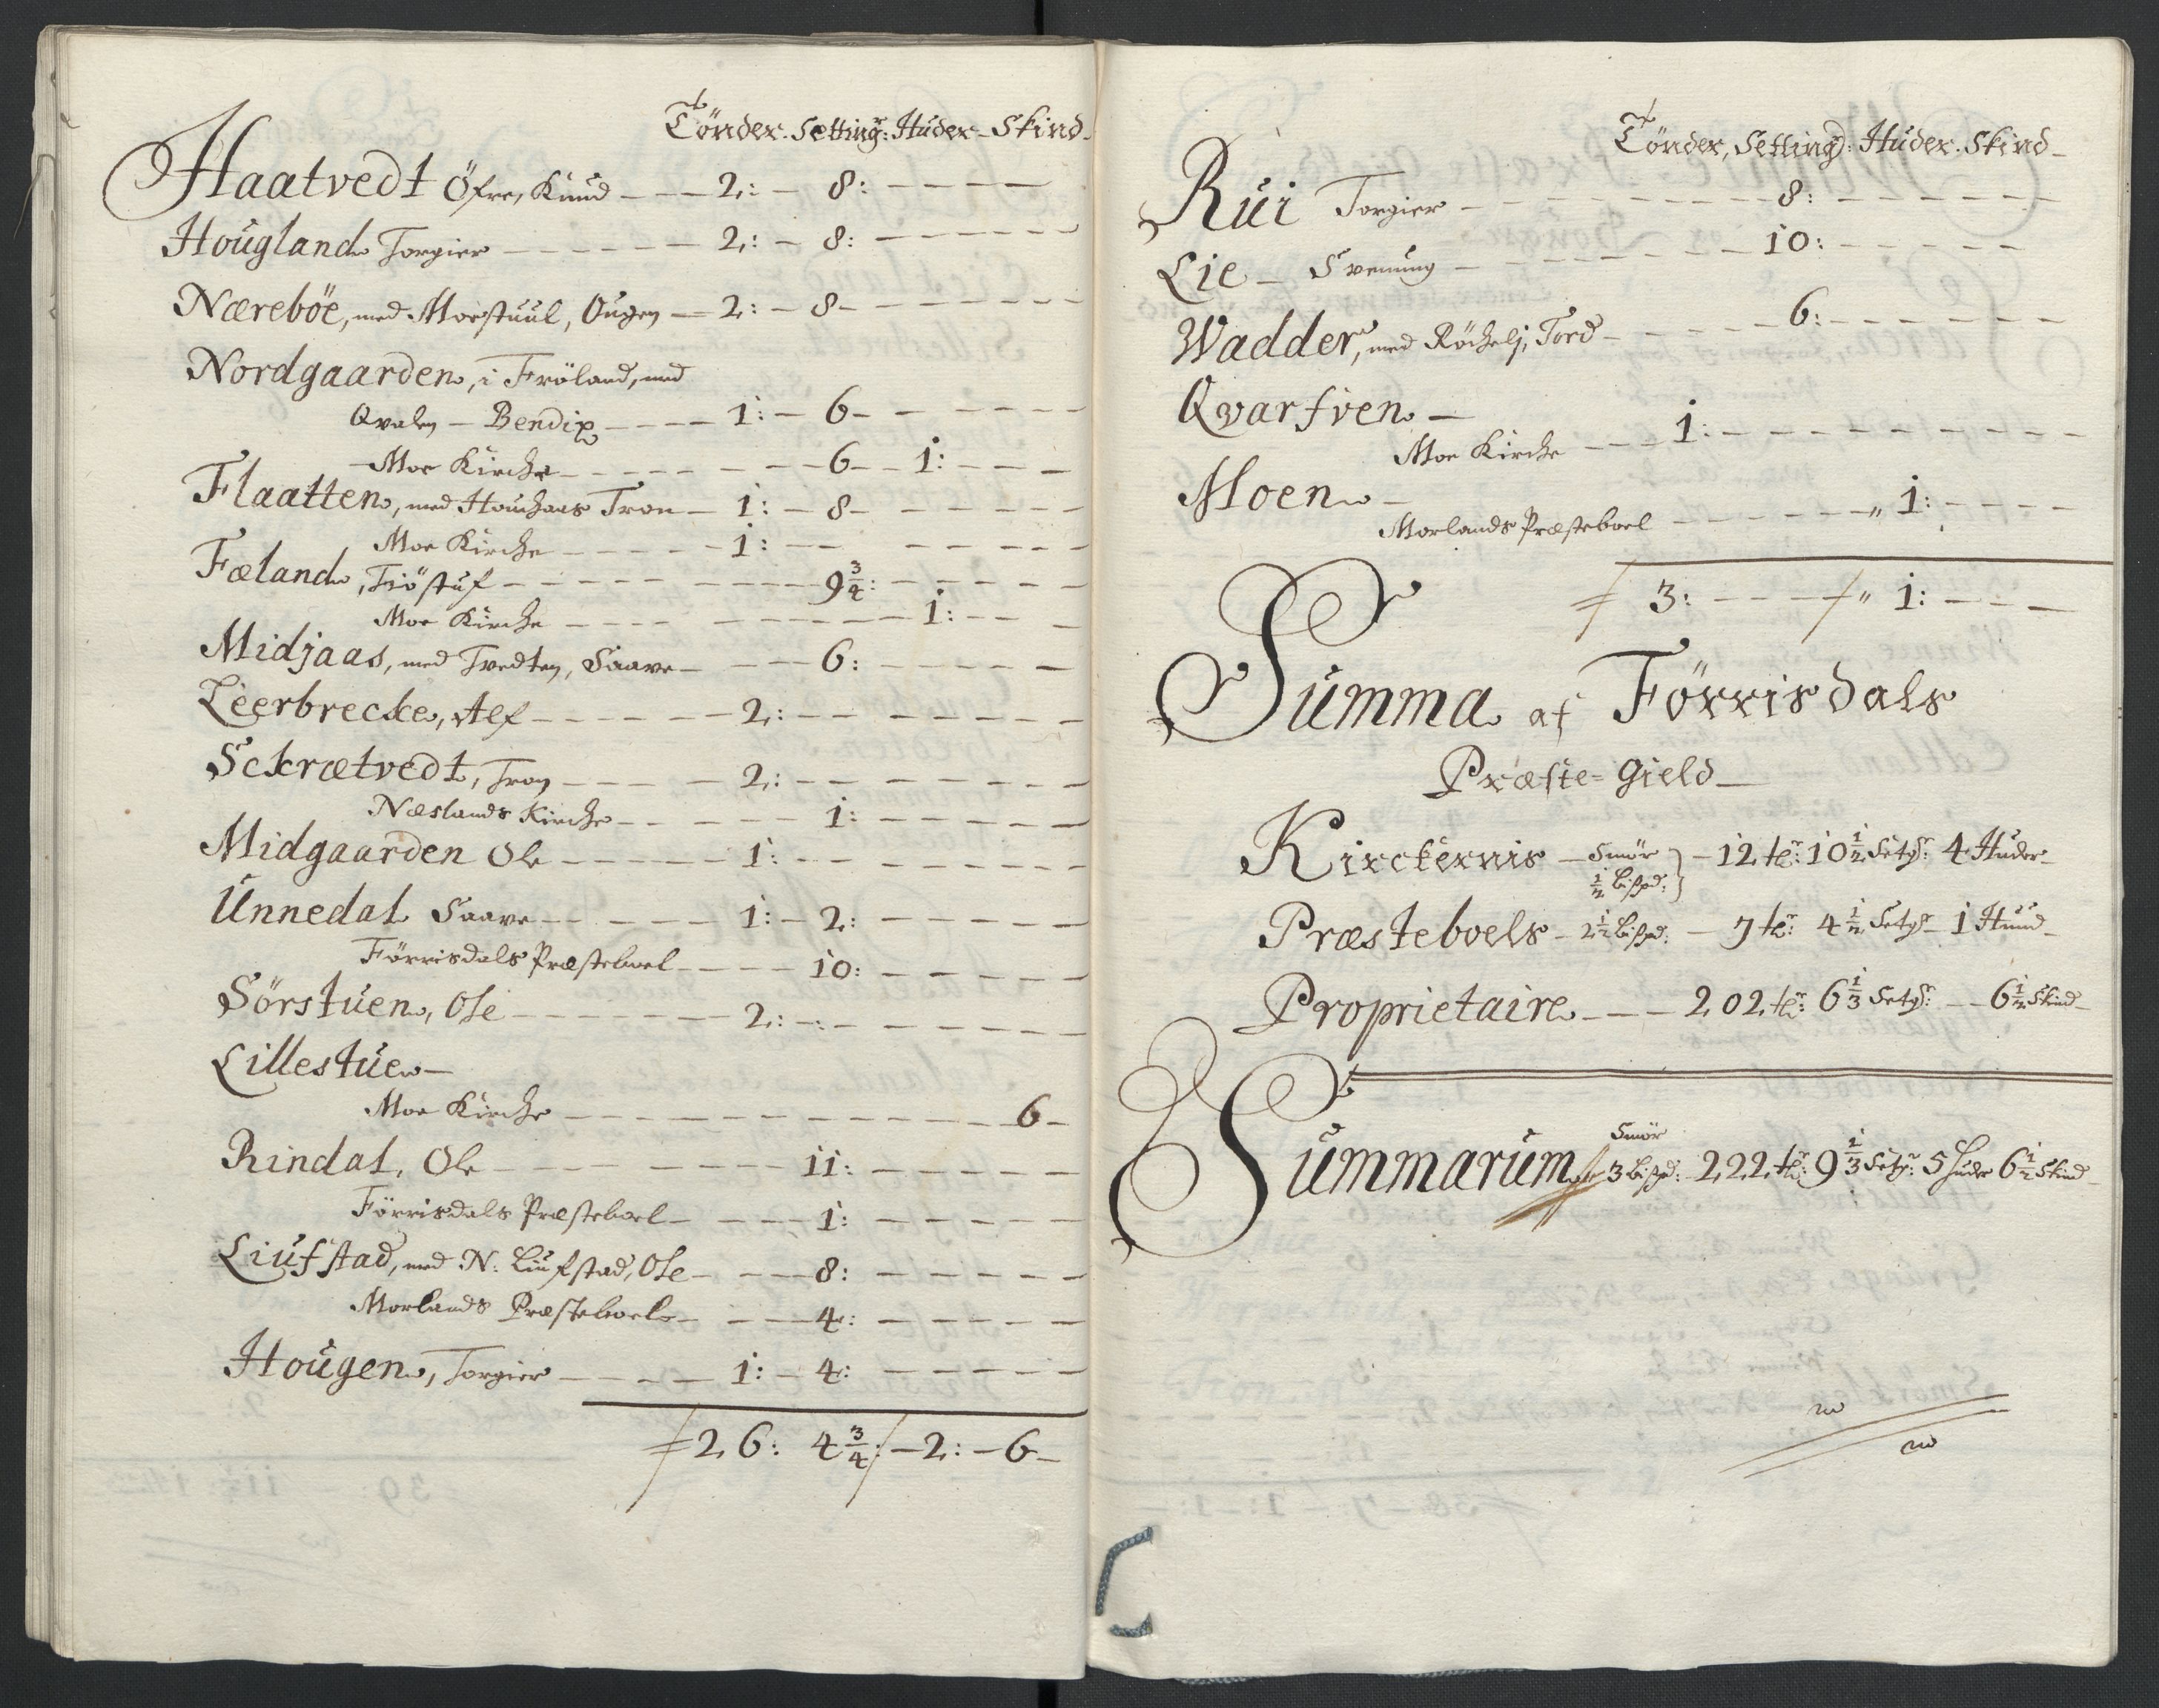 Tönder. Setting: Huder - Skind -
Haatvedt Öfre, Knud - - - 2: - 8: - - - -
Hougland Torgier - - - - - - 2: - 8: - - - - - -
Næreböe, med Moestuul, Ougen - 2: - 8 - - - - - - -
Nordgaarden, i Fröland, med
Qvalen - Bendix - - - - 1: - 6 - - - - - -
Moe Kircke - - - - - - - 6 - - 1: - - -
Flaatten, med Houchaas Tron - 1: - 8 - - - - - -
Moe Kircke - - - - - 1: - - - - - - -
Fæland, Tiöstuf - - - - - - - - - 9 3/4: - - - - -
Moe Kircke - - - - - - - - - 1: - - -
Midjaas, med Tvedten, Saave - - - - 6: - - - - -
Leerbrecke, Alf - - - - - - 2: - - - - - - -
Sckrætvedt, Tron - - - - 2: - - - - - - -
Næslands Kircke - - - - - - 1: - - - - -
Midgaarden Ole - - - - - 1: - - - - - - -
Unnedal Saave - - - - - 1: - 2: - - - - -
Förrisdals Præsteboel - - - - 10: - - - - -
Sörstuen, Ole - - - - - - 2: - - - - - - -
Lillestue -
Moe Kircke - - - - - - - - - - - - - 6 -
Rindal, Ole - - - - - - - - - 11: - - - - -
Förrisdals Præsteboel - - - - 1: - - - - -
Liufstad, med N: Liufstad, Ole - - - - 8: - - - - -
Morlands Præsteboel - - - - 4: - - - - -
Hougen, Torgier - - - - 1: - 4: - - - - -
26: 4 3/4: - 2: - 6 -
Tönder, Setting: Huder. Skind -
Rui Torgier - - - - - - - - - - 8: - - - - - -
Lie - Svenung - - - - - - - - 10: - - - - -
Wadder, med Röckelj, Tord - - - - - 6: - - - - - -
Qvarfven -
Moe Kircke - - - 1: - - - - - - - - -
Moen -
Morlands Præsteboel - - - - - - - " 1: - - - -
3: - - - - " 1: - - -
Summa af Förrisdals
Præste-Gield -
Kirckernis - Smör 1/2 Bißpd: - 12 tr: 10 1/2 Setgr: 4 Huder -
Præsteboels - 2 1/2 Bißpd: - 7 tr: 4 1/2 Setgr - 1 Huud -
Proprietaire - - - 202 tr: 6 1/3 Setgr: - - 6 1/2 Skind -
Summarum Smör 3 Bißpd: 222 tr: 9 1/3 Setgr: 5 Huder 6 1/2 Skind -